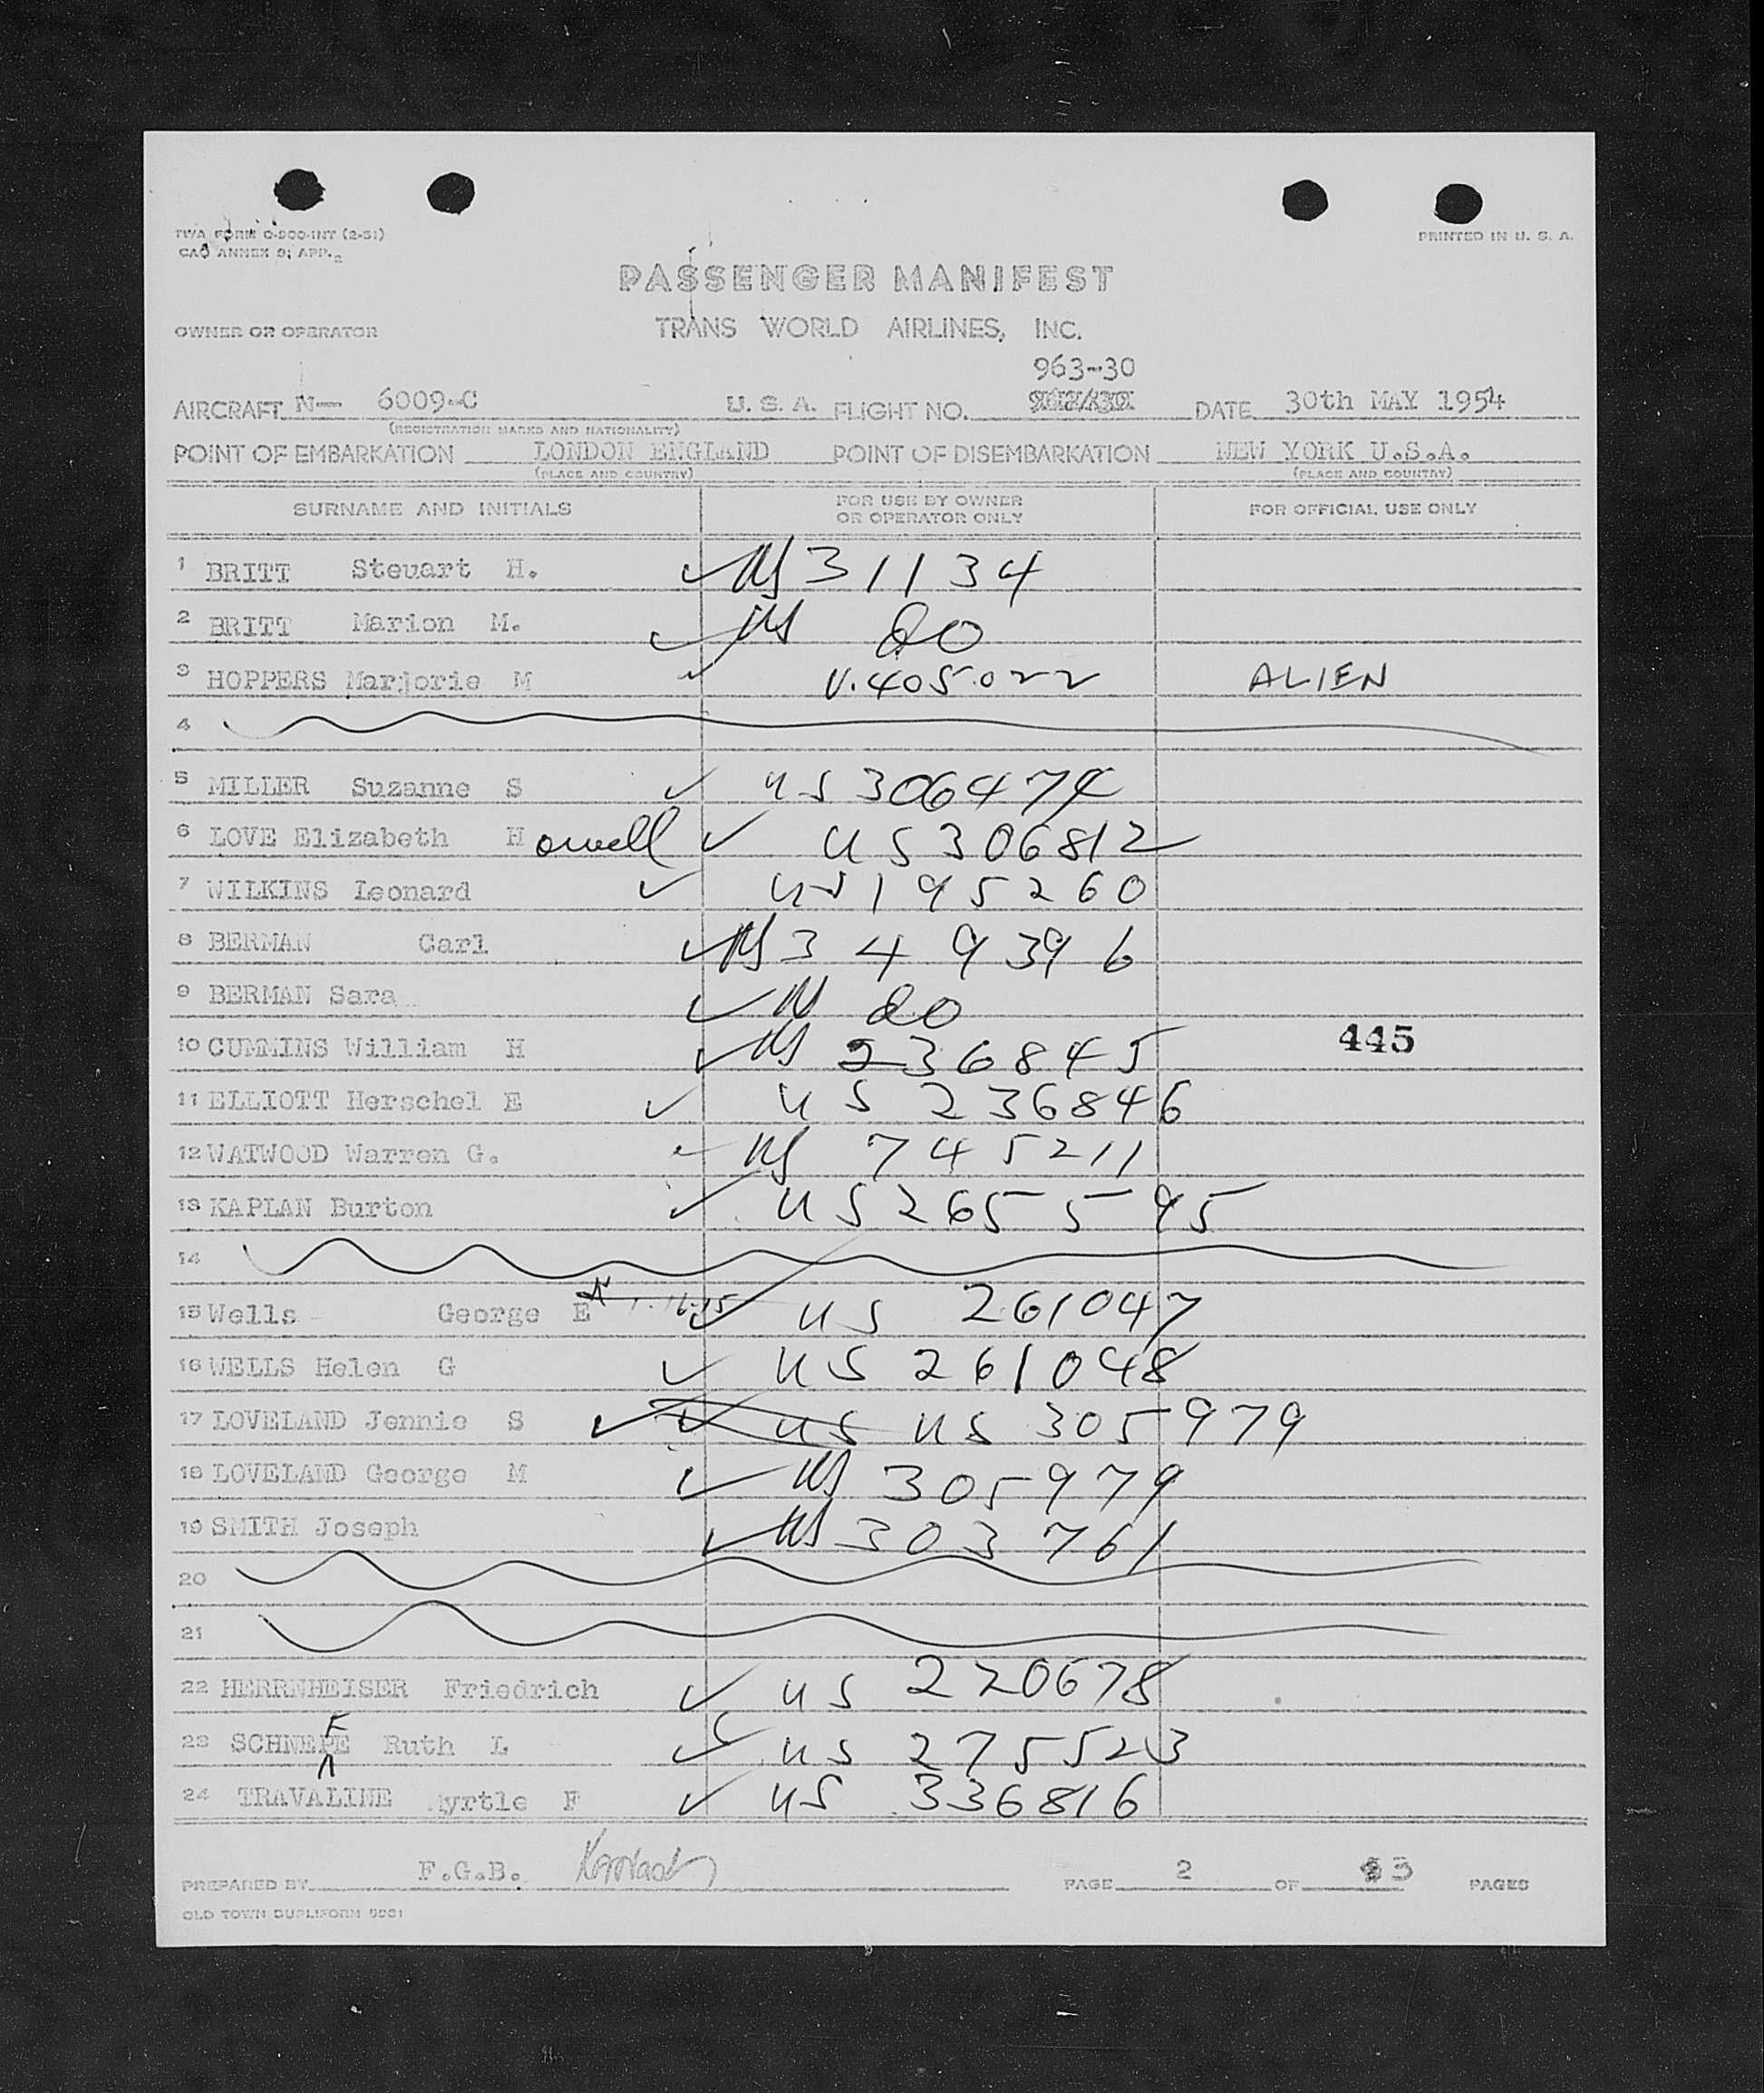 TWA FORM O-900-INT (2-51)
CAO ANNEX 9, APP. 2
PRINTED IN U. S. A.
PASSENGER MANIFEST
OWNER OR OPERATOR TRANS WORLD AIRLINES, INC.
963-30
AIRCRAFT N— 6009-C U. S. A. FLIGHT NO. DATE 30th MAY 1954
(REGISTRATION MARKS AND NATIONALITY)
POINT OF EMBARKATION LONDON ENGLAND POINT OF DISEMBARKATION NEW YORK U.S.A.
(PLACE AND COUNTRY) (PLACE AND COUNTRY)
SURNAME AND INITIALS FOR USE BY OWNER OR OPERATOR ONLY FOR OFFICIAL USE ONLY
1 BRITT Steuart H. ✓ US 31134
2 BRITT Marion M. ✓ US do
3 HOPPERS Marjorie M ✓ V.405022 ALIEN
4
5 MILLER Suzanne S ✓ US 306474
6 LOVE Elizabeth Howell ✓ US 306812
7 WILKINS Leonard ✓ US 195260
8 BERMAN Carl ✓ US 349396
9 BERMAN Sara ✓ US do
10 CUMMINS William H ✓ US 236845 445
11 ELLIOTT Herschel E ✓ US 236846
12 WATWOOD Warren G. ✓ US 745211
13 KAPLAN Burton ✓ US 265595
14
15 Wells George E ✓ US 261047
16 WELLS Helen G ✓ US 261048
17 LOVELAND Jennie S ✓ ✓ US US 305979
18 LOVELAND George M ✓ US 305979
19 SMITH Joseph ✓ US 303761
20
21
22 HERRNHEISER Friedrich ✓ US 220678
F
23 SCHNEPE Ruth L ✓ US 275523
24 TRAVALINE Myrtle F ✓ US 336816
PREPARED BY F.G.B. PAGE 2 OF 3 PAGES
OLD TOWN DUPLIFORM 9961